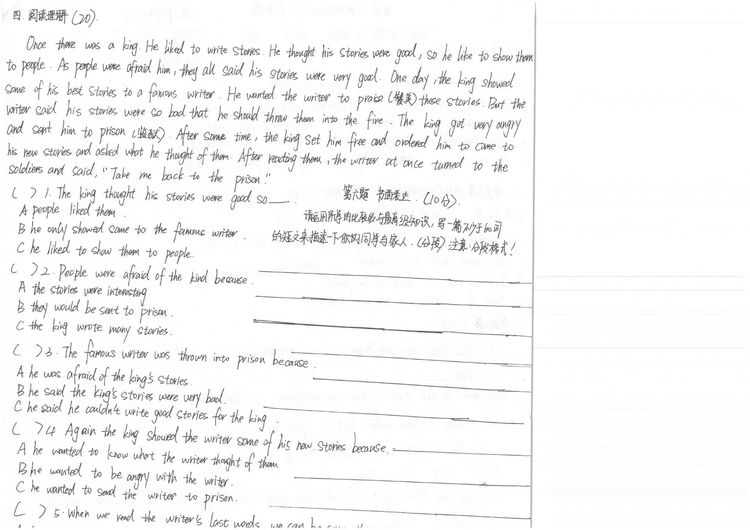 四. 阅读理解 (20).
Once there was a king. He liked to write stories. He thought his stories were good, so he like to show them
to people. As people were afraid him, they all said his stories were very good. One day, the king showed
some of his best stories to a famous writer. He wanted the writer to praise (赞美) these stories. But the
writer said his stories were so bad that he should throw them into the fire. The king got very angry
and sent him to prison (监狱). After some time, the king set him free and ordered him to come to
his new stories and asked what he thught of them. After reading them, the writer at once turned to the
soldiers and said, "Take me back to the prison."
( ) 1. The king thought his stories were good so ___.
A people liked them.
B he only showed some to the famous writer.
C he liked to show them to people.
第六题 书面表达. (10分).
请运用所学的比较级与最高级知识, 写一篇不少于60词
的短文来描述一下你的同学与家人. (分段) 注意: 分段格式!
( ) 2. People were afraid of the kind because.
A the stories were interesting
B they would be sent to prison.
C the king wrote many stories.
( ) 3. The famous writer was thrown into prison because.
A he was afraid of the king's stories.
B he said the king's stories were very bad.
C he said he couldn't write good stories for the king.
( ) 4 Again the king showed the writer some of his new stories because.
A he wanted to know what the writer thought of them
B he wanted to be angry with the writer.
C he wanted to send the writer to prison.
( ) 5. When we read the writer's last words, we can be